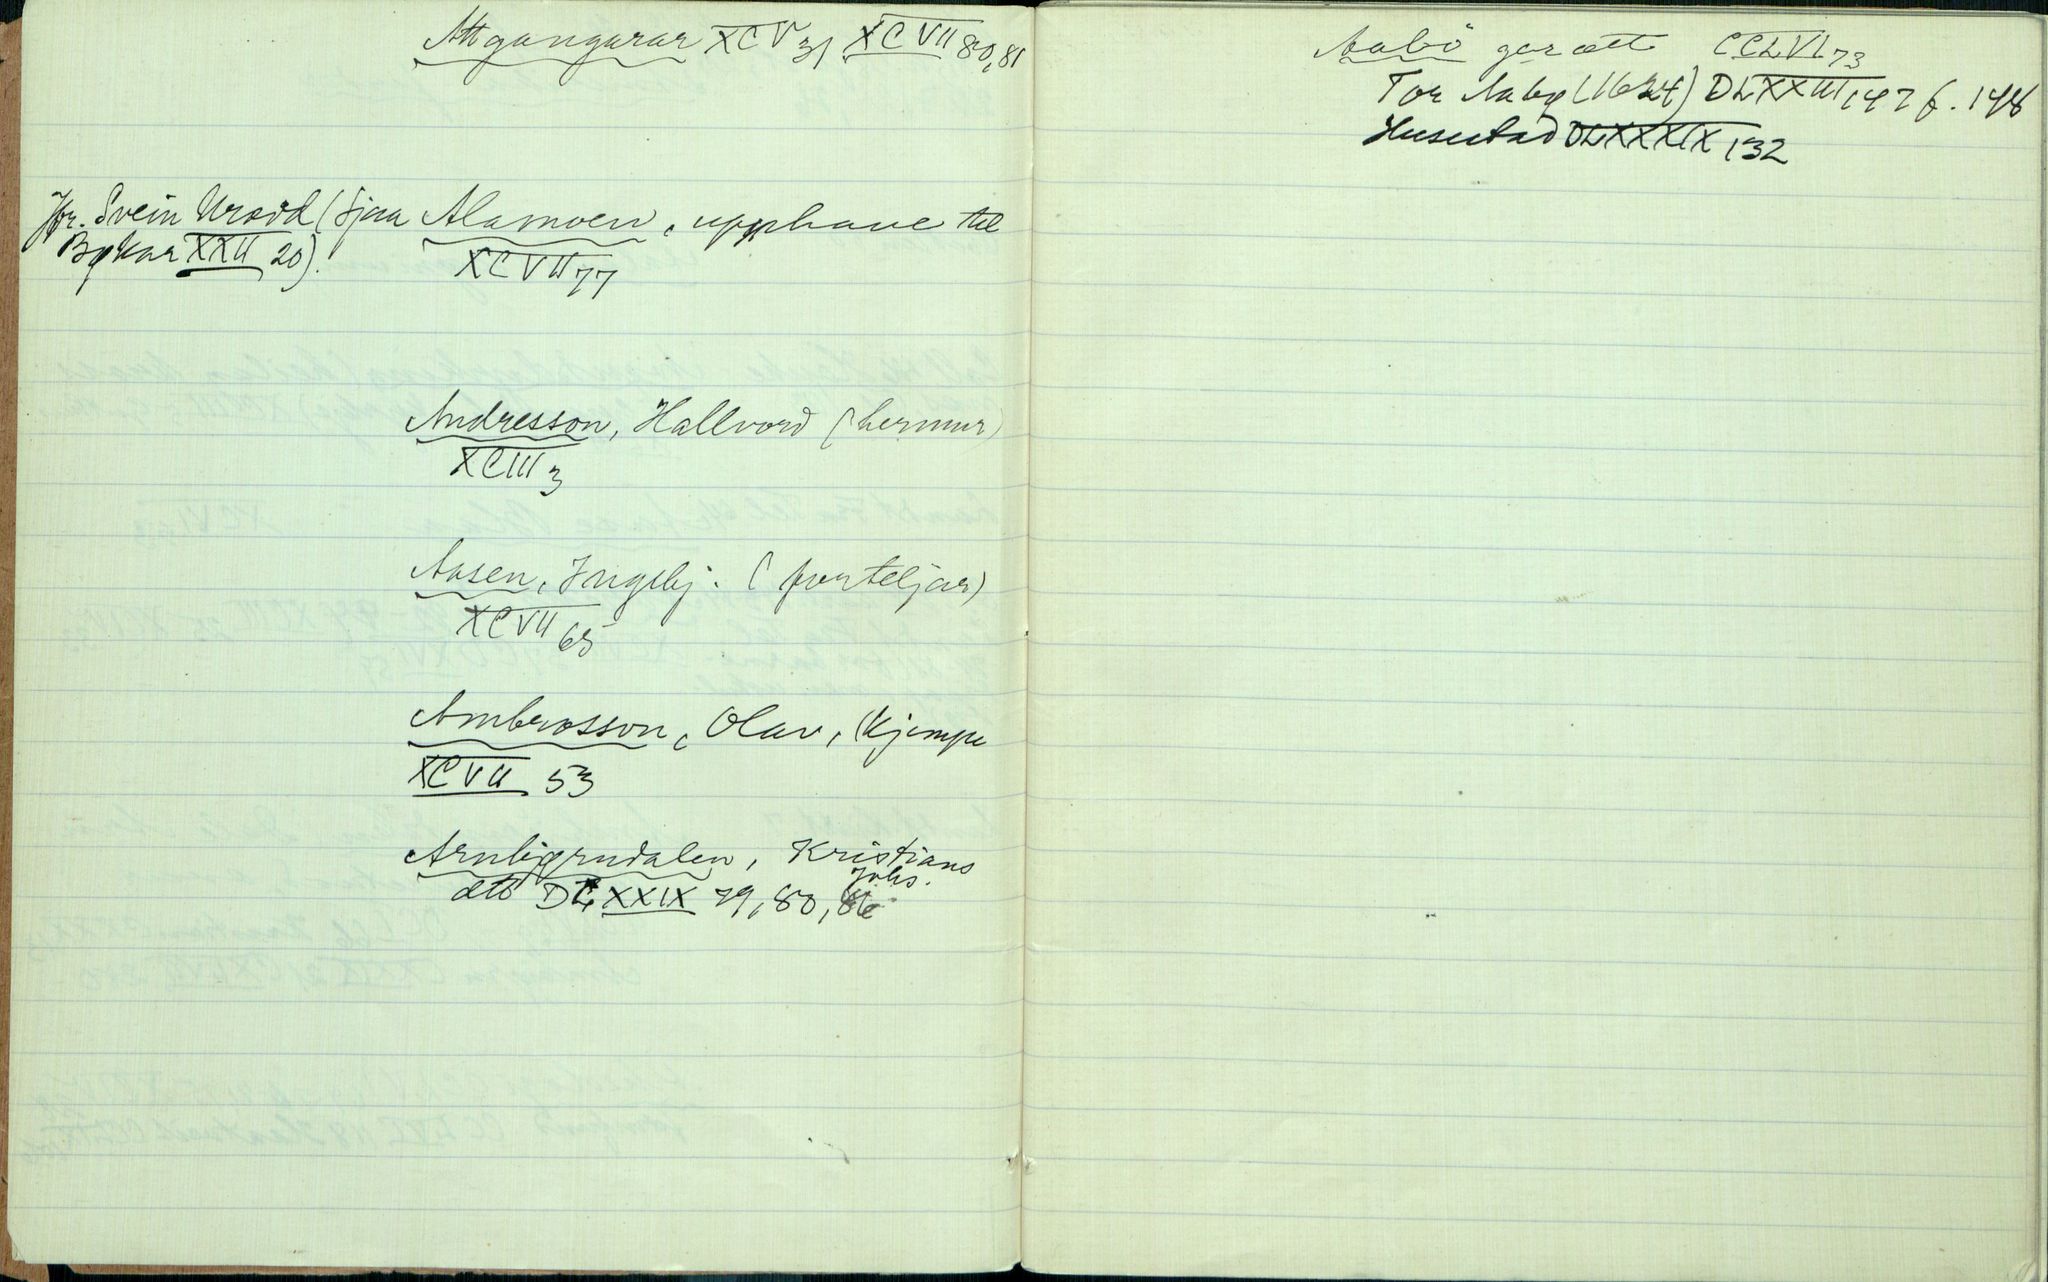 Attgangarar XCV 31 XCVII 80,81
Jfr. Svein Uraad (sjaa Alamoen, upphave til
Bykar XXII 20). XCVII 77
Andresson, Hallvord (hermur)
XCIII 3
Aasen, Ingebj. (forteljar)
XCVII 65
Ambrosson, Olav, (kjempe
XCVII 53
Arnbjørndalen, Kristians
Johs.
ætt DLXXIX 79, 80, 86
Aabö gar ætt CCLVI 73
Tor Aabø (16 ) DLXXIII 147 f. 148
Husestad DLXXXIX 132